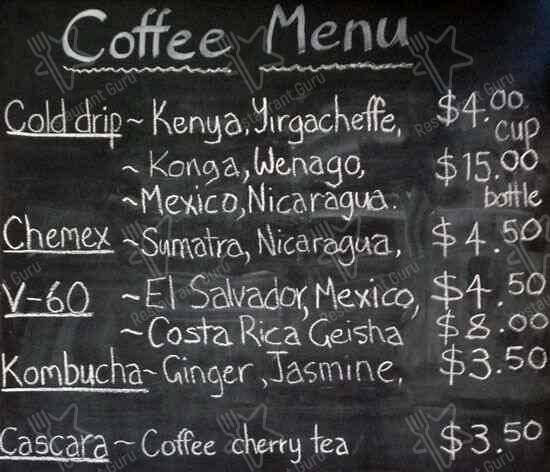 Coffee Menu
Cold drip ~ Kenya, Yirgacheffe, $4.00 cup
~ Konga, Wenago, $15.00 bottle
~ Mexico, Nicaragua.
Chemex ~ Sumatra, Nicaragua, $4.50
V-60 ~ El Salvador, Mexico, $4.50
~ Costa Rica Geisha $8.00
Kombucha ~ Ginger, Jasmine, $3.50
Cascara ~ Coffee cherry tea $3.50
Restaurant Guru